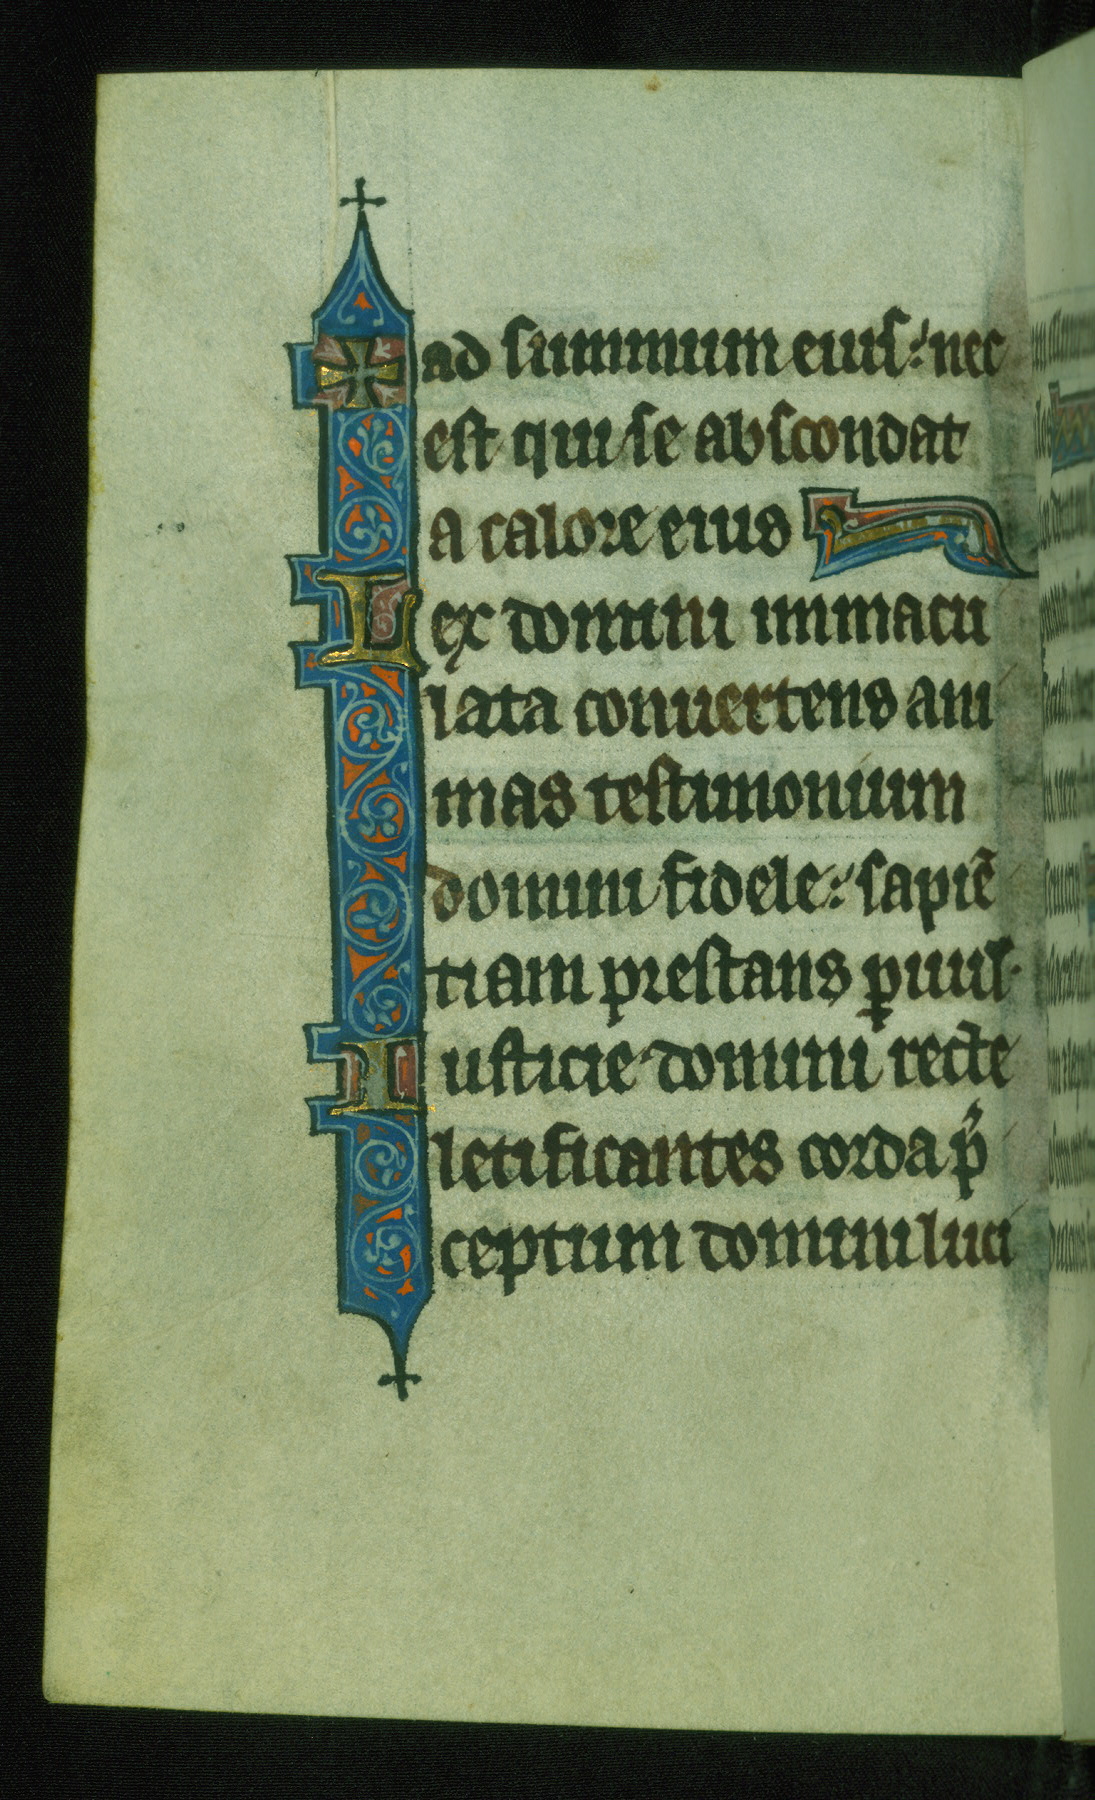 ad summum eius: nec
est qui se abscondat
a calore eius
Lex domini immacu
lata conuertens ani
mas testimonium
domini fidele: sapiē
tiam prestans ꝑuul'.
Iusticie domini recte
letificantes corda p̄
ceptum domini luci